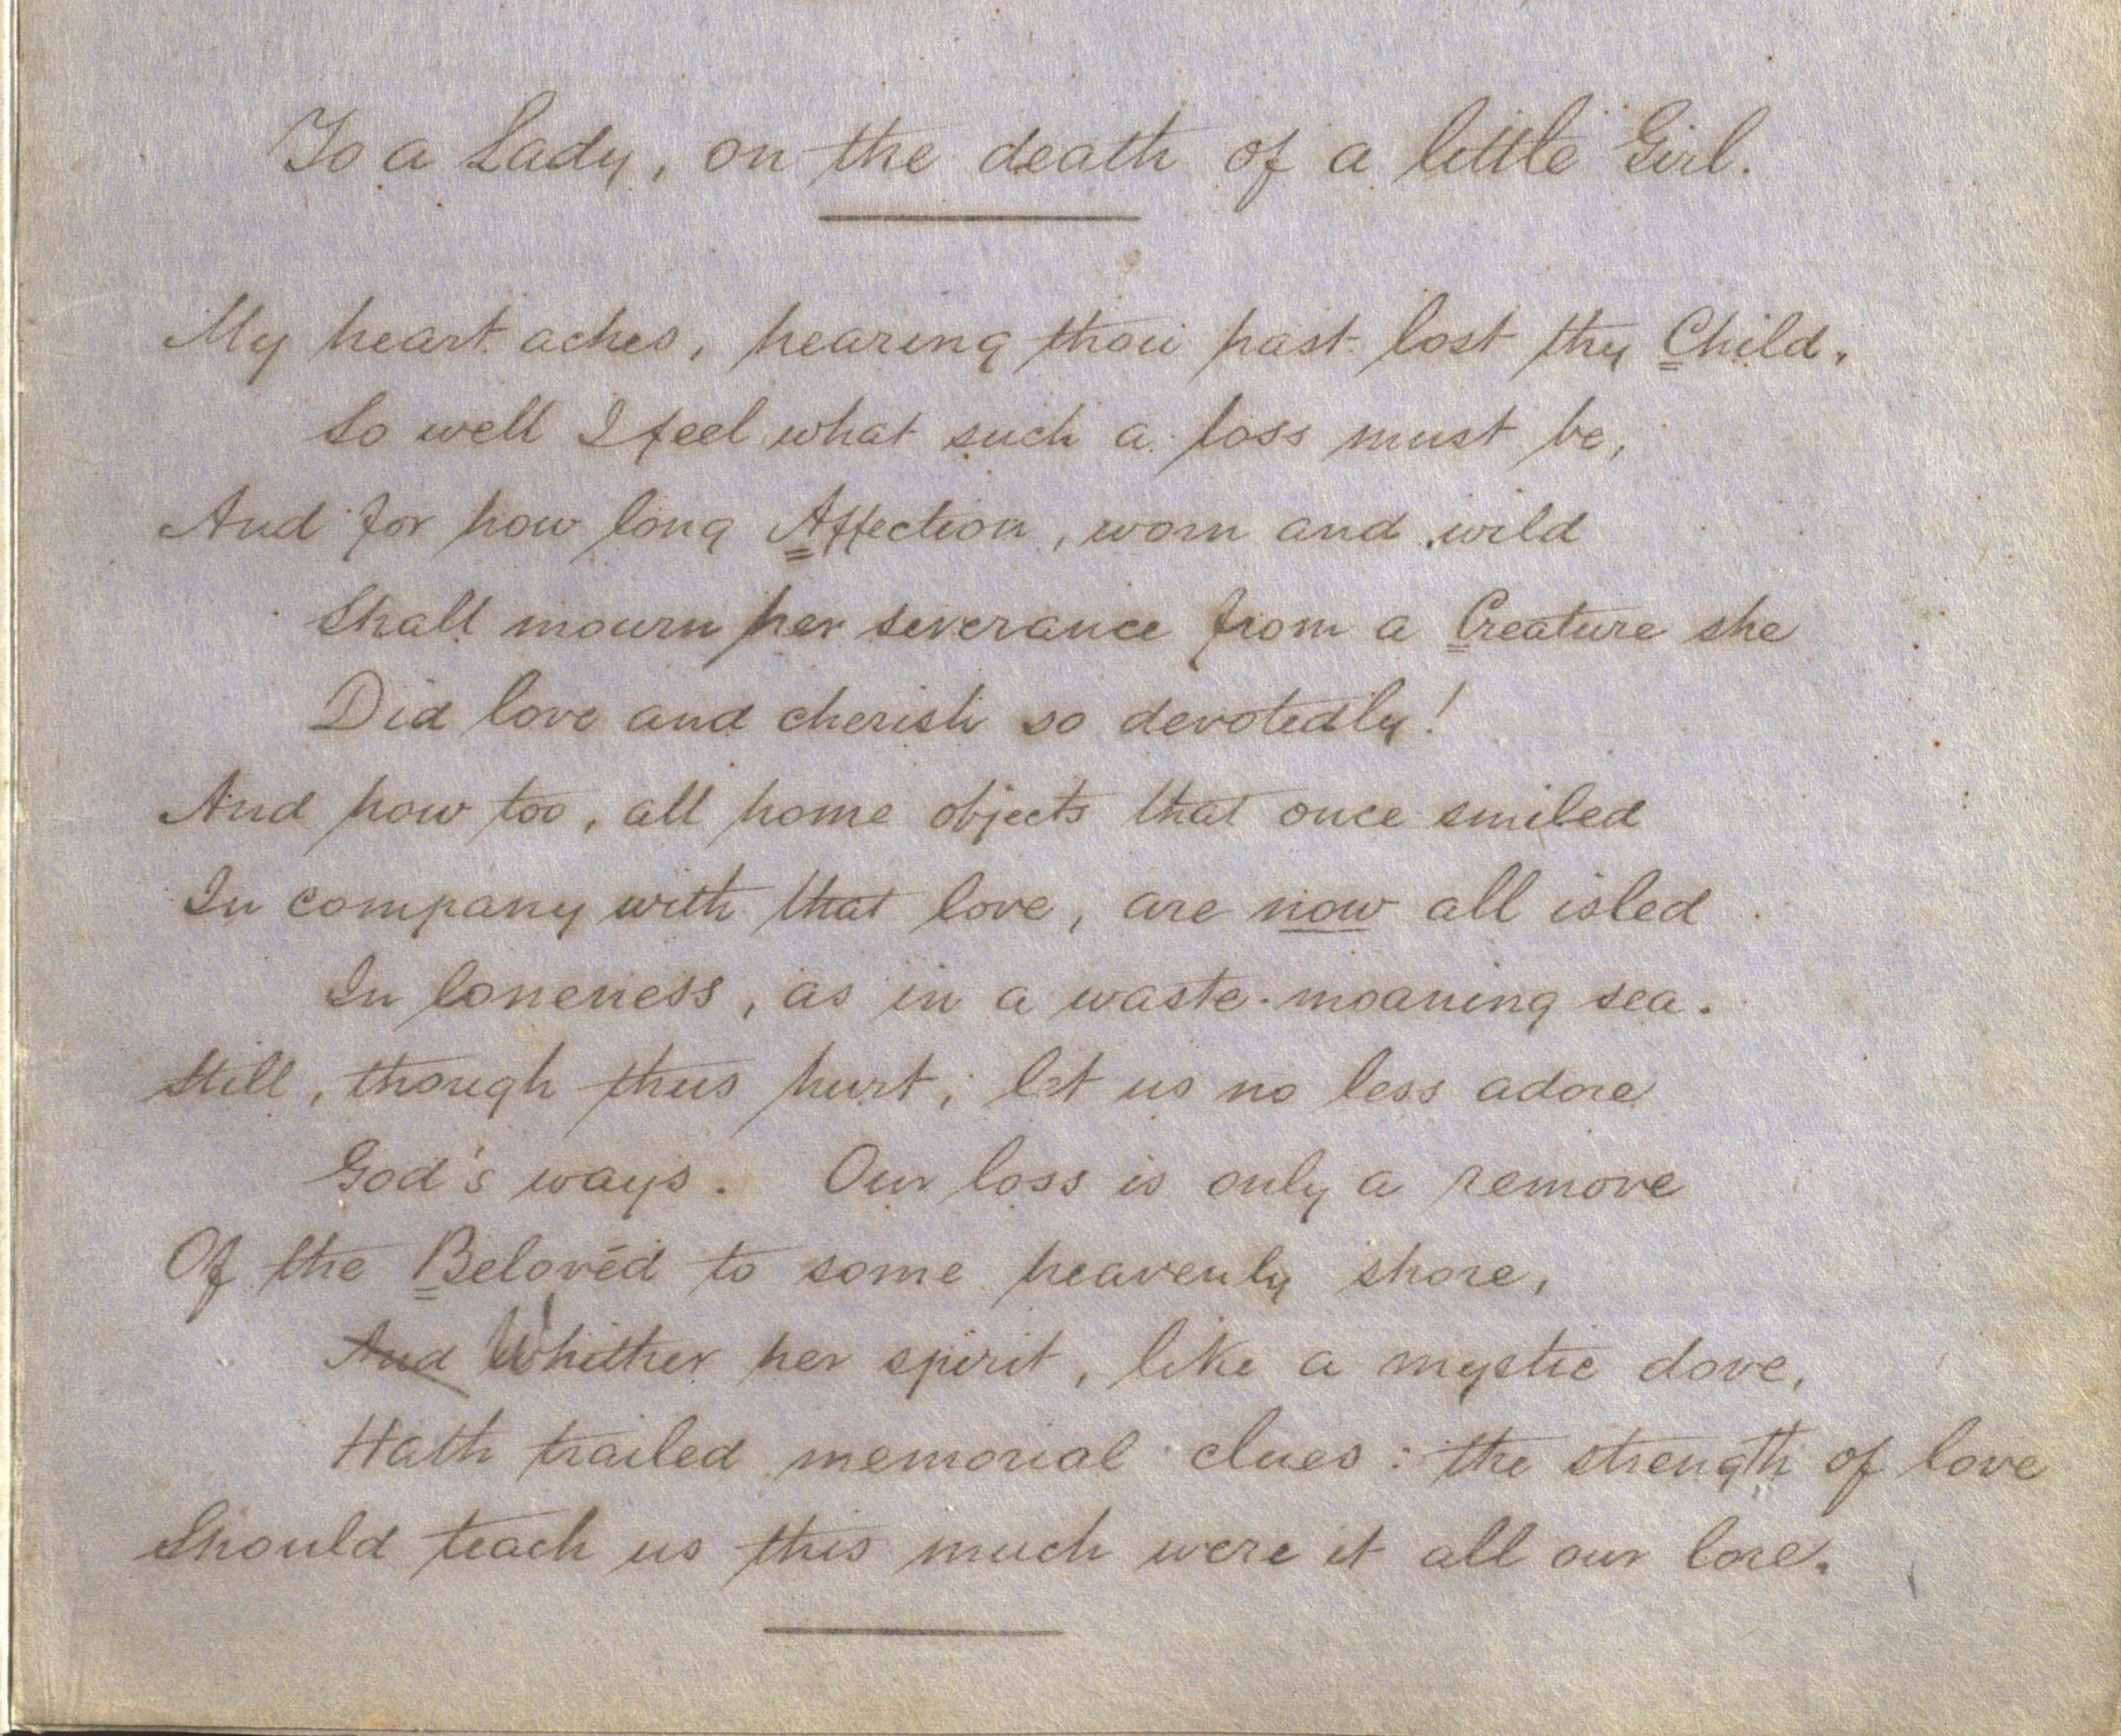 To a Lady, on the death of a little Girl.
My heart aches, hearing thou hast lost thy Child,
So well I feel what such a loss must be,
And for how long Affection, worn and wild
Shall mourn her severance from a Creature she
Did love and cherish so devotedly!
And how too, all home objects that once smiled
In company with that love, are now all isled
In loneness, as in a waste-moaning sea.
Still, though thus hurt, let us no less adore
God's ways. Our loss is only a remove
Of the Belovéd to some heavenly shore,
And Whither her spirit, like a mystic dove,
Hath trailed memorial clues: the strength of love
Should teach us this much were it all our lore.